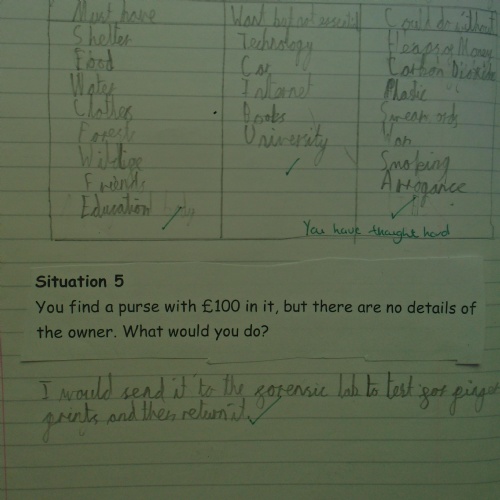 Must have
Want but not essential
Could do without
Shelter
Food
Water
Clothes
Forest
Wildlife
Friends
Education
Technology
Car
Internet
Books
University
Heaps of Money
Carbon Dioxide
Plastic
Swear words
War
Smoking
Arrogance
You have thought hard
Situation 5
You find a purse with £100 in it, but there are no details of
the owner. What would you do?
I would send it to the forensic lab to test for finger
prints and then return it.